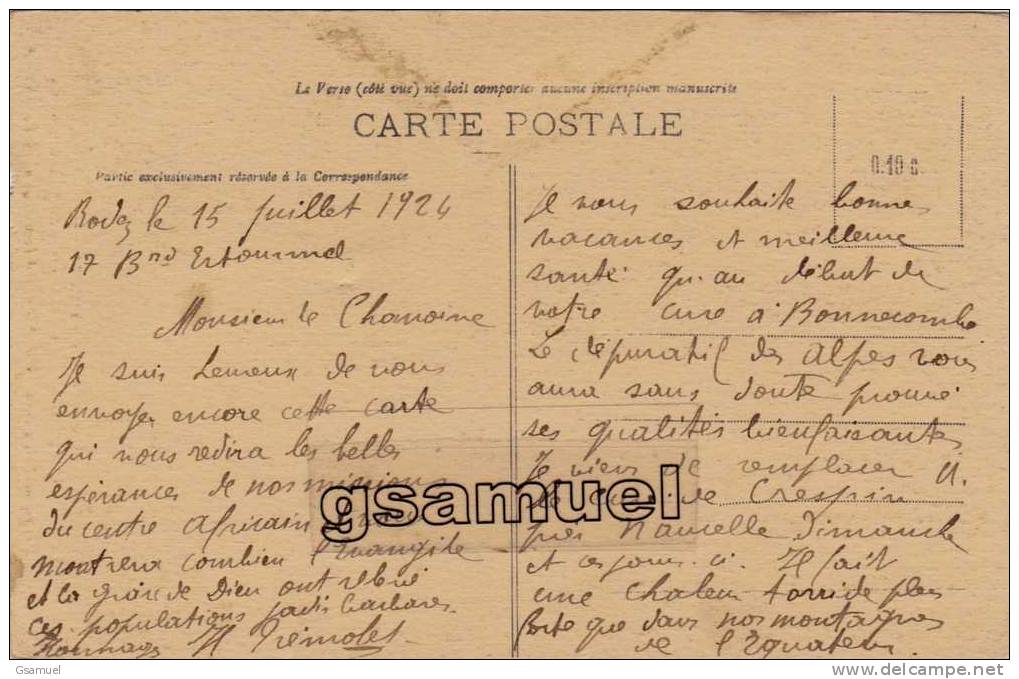 Le Verso (côté vue) ne doit comporter aucune inscription manuscrite
CARTE POSTALE
0.10 c.
Partie exclusivement réservée à la Correspondance
Rodez le 15 Juillet 1924
17 Bard Estourmel
Monsieur le Chanoine
Je suis heureux de vous
envoyer encore cette carte
qui vous redira les belles
espérances de nos missions
du centre Africain
montrera combien l'Evangile
et la grâce de Dieu ont relevé
ces populations jadis barbares.
Hommages H Trémolet
Je vous souhaite bonnes
vacances et meilleure
santé qu'au début de
votre cure à Bonnecombe
Le dépuratif des Alpes vous
aura sans doute prouvé
ses qualités bienfaisantes
Je viens de remplacer M.
le curé de Crespin
près Naucelle Dimanche
et ces jours-ci. Il fait
une chaleur torride plus
forte que dans nos montagnes
de l'Equateur.
gsamuel
Gsamuel
www.delcampe.net